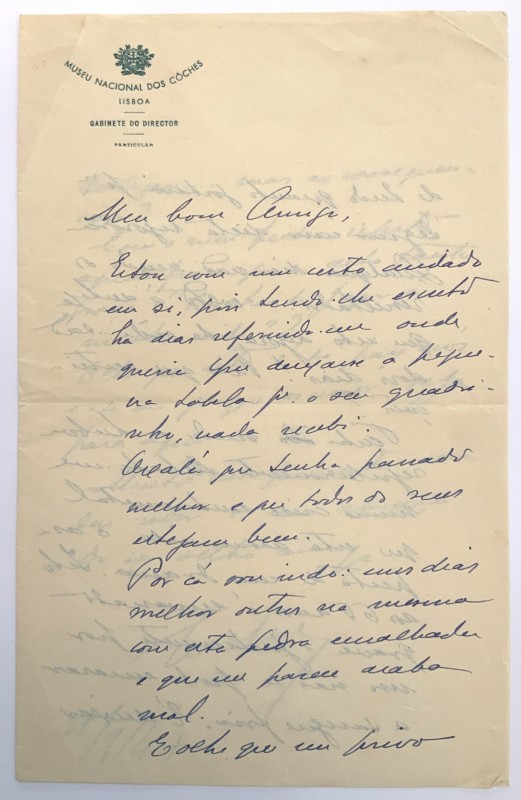 MUSEU NACIONAL DOS CÔCHES
LISBOA
GABINETE DO DIRECTOR
PARTICULAR
Meu bom Amigo,
Estou com um certo cuidado
em si, pois tendo-lhe escrito
ha dias referindo-me onde
queria que deixasse a peque-
na tabela pª. o seu quadri-
nho, nada recebi.
Oxalá que tenha passado
melhor e que todos os seus
estejam bem.
Por cá vou indo: uns dias
melhor outros na mesma
com esta pedra encalhada
e que me parece acaba
mal.
E olhe que me privo